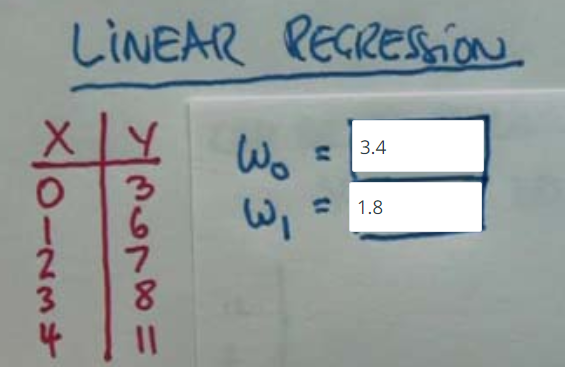 LINEAR REGRESSION
X Y
0 3
1 6
2 7
3 8
4 11
W0 = 3.4
W1 = 1.8